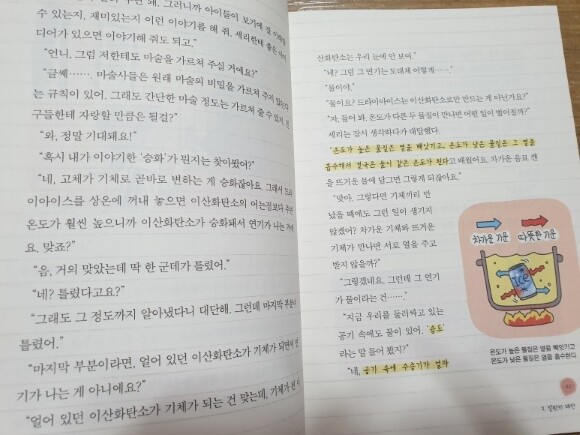 수 있는지, 재미있는지 이런 이야기를 해 줘. 세리한테 좋은 아이
디어가 있으면 이야기해 줘도 되고."
"언니, 그럼 저한테도 마술을 가르쳐 주실 거예요?"
"글쎄……. 마술사들은 원래 마술의 비밀을 가르쳐 주지 않는다
는 규칙이 있어. 그래도 간단한 마술 정도는 가르쳐 줄 수 있지. 친
구들한테 자랑할 만큼은 될걸?"
"와, 정말 기대돼요!"
"혹시 내가 이야기한 '승화'가 뭔지는 찾아봤어?"
"네, 고체가 기체로 곧바로 변하는 게 승화잖아요. 그래서 드라
이아이스를 상온에 꺼내 놓으면 이산화탄소의 어는점보다 주변
온도가 훨씬 높으니까 이산화탄소가 승화돼서 연기가 나는 거지
요. 맞죠?"
"음, 거의 맞았는데 딱 한 군데가 틀렸어."
"네? 틀렸다고요?"
"그래도 그 정도까지 알아냈다니 대단해. 그런데 마지막 부분이
틀렸어."
"마지막 부분이라면, 얼어 있던 이산화탄소가 기체가 되면서 연
기가 나는 게 아니에요?"
"얼어 있던 이산화탄소가 기체가 되는 건 맞는데, 기체가 된
산화탄소는 우리 눈에 안 보여."
"네? 그럼 그 연기는 도대체 어떻게……."
"물이야."
"물이요? 드라이아이스는 이산화탄소로만 만드는 게 아닌가요?"
"자, 들어 봐. 온도가 다른 두 물질이 만나면 어떤 일이 벌어질까?"
세리는 잠시 생각하다가 대답했다.
"온도가 높은 물질은 열을 빼앗기고, 온도가 낮은 물질은 그 열을
흡수해서 결국은 둘이 같은 온도가 된다고 배웠어요. 차가운 음료 캔
을 뜨거운 물에 담그면 그렇게 되잖아요."
"맞아. 그렇다면 기체끼리 만
났을 때에도 그런 일이 생기지
않겠어? 차가운 기체와 뜨거운
기체가 만나면 서로 열을 주고
받지 않을까?"
"그렇겠네요. 그런데 그 연기
가 물이라는 건……."
"지금 우리를 둘러싸고 있는
공기 속에도 물이 있어. '습도'
라는 말 들어 봤지?"
"네, 공기 속에 수증기가 얼마
차가운 기운
따뜻한 기운
ICE
온도가 높은 물질은 열을 빼앗기고
온도가 낮은 물질은 열을 흡수한다.